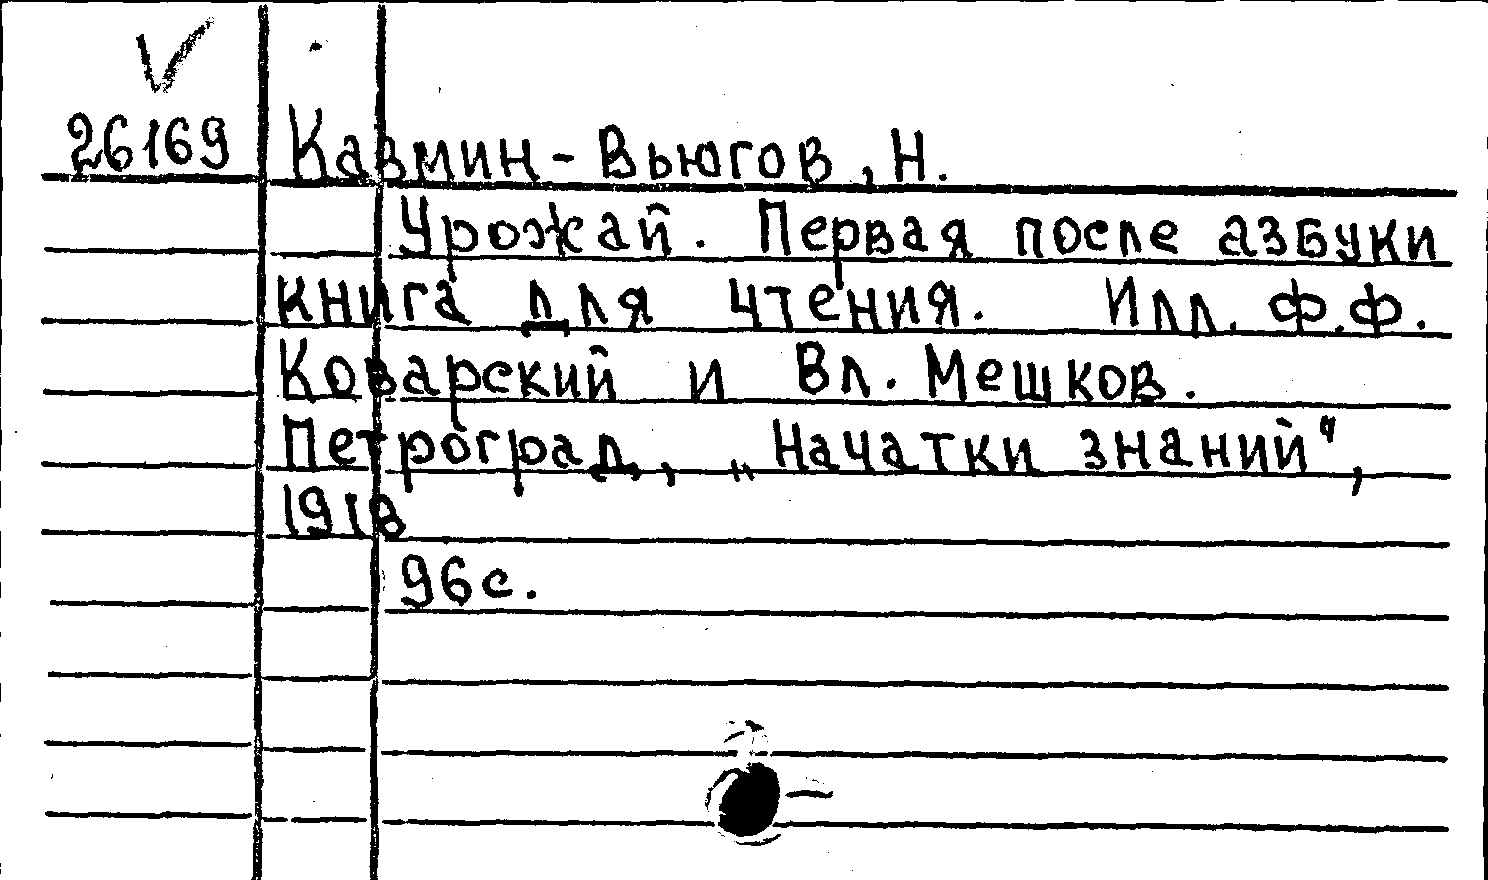 26169 Казмин-Вьюгов, Н.
Урожай. Первая после азбуки
книга для чтения. Илл. Ф.Ф.
Коварский и Вл. Мешков.
Петроград, „Начатки знаний",
1918
96с.